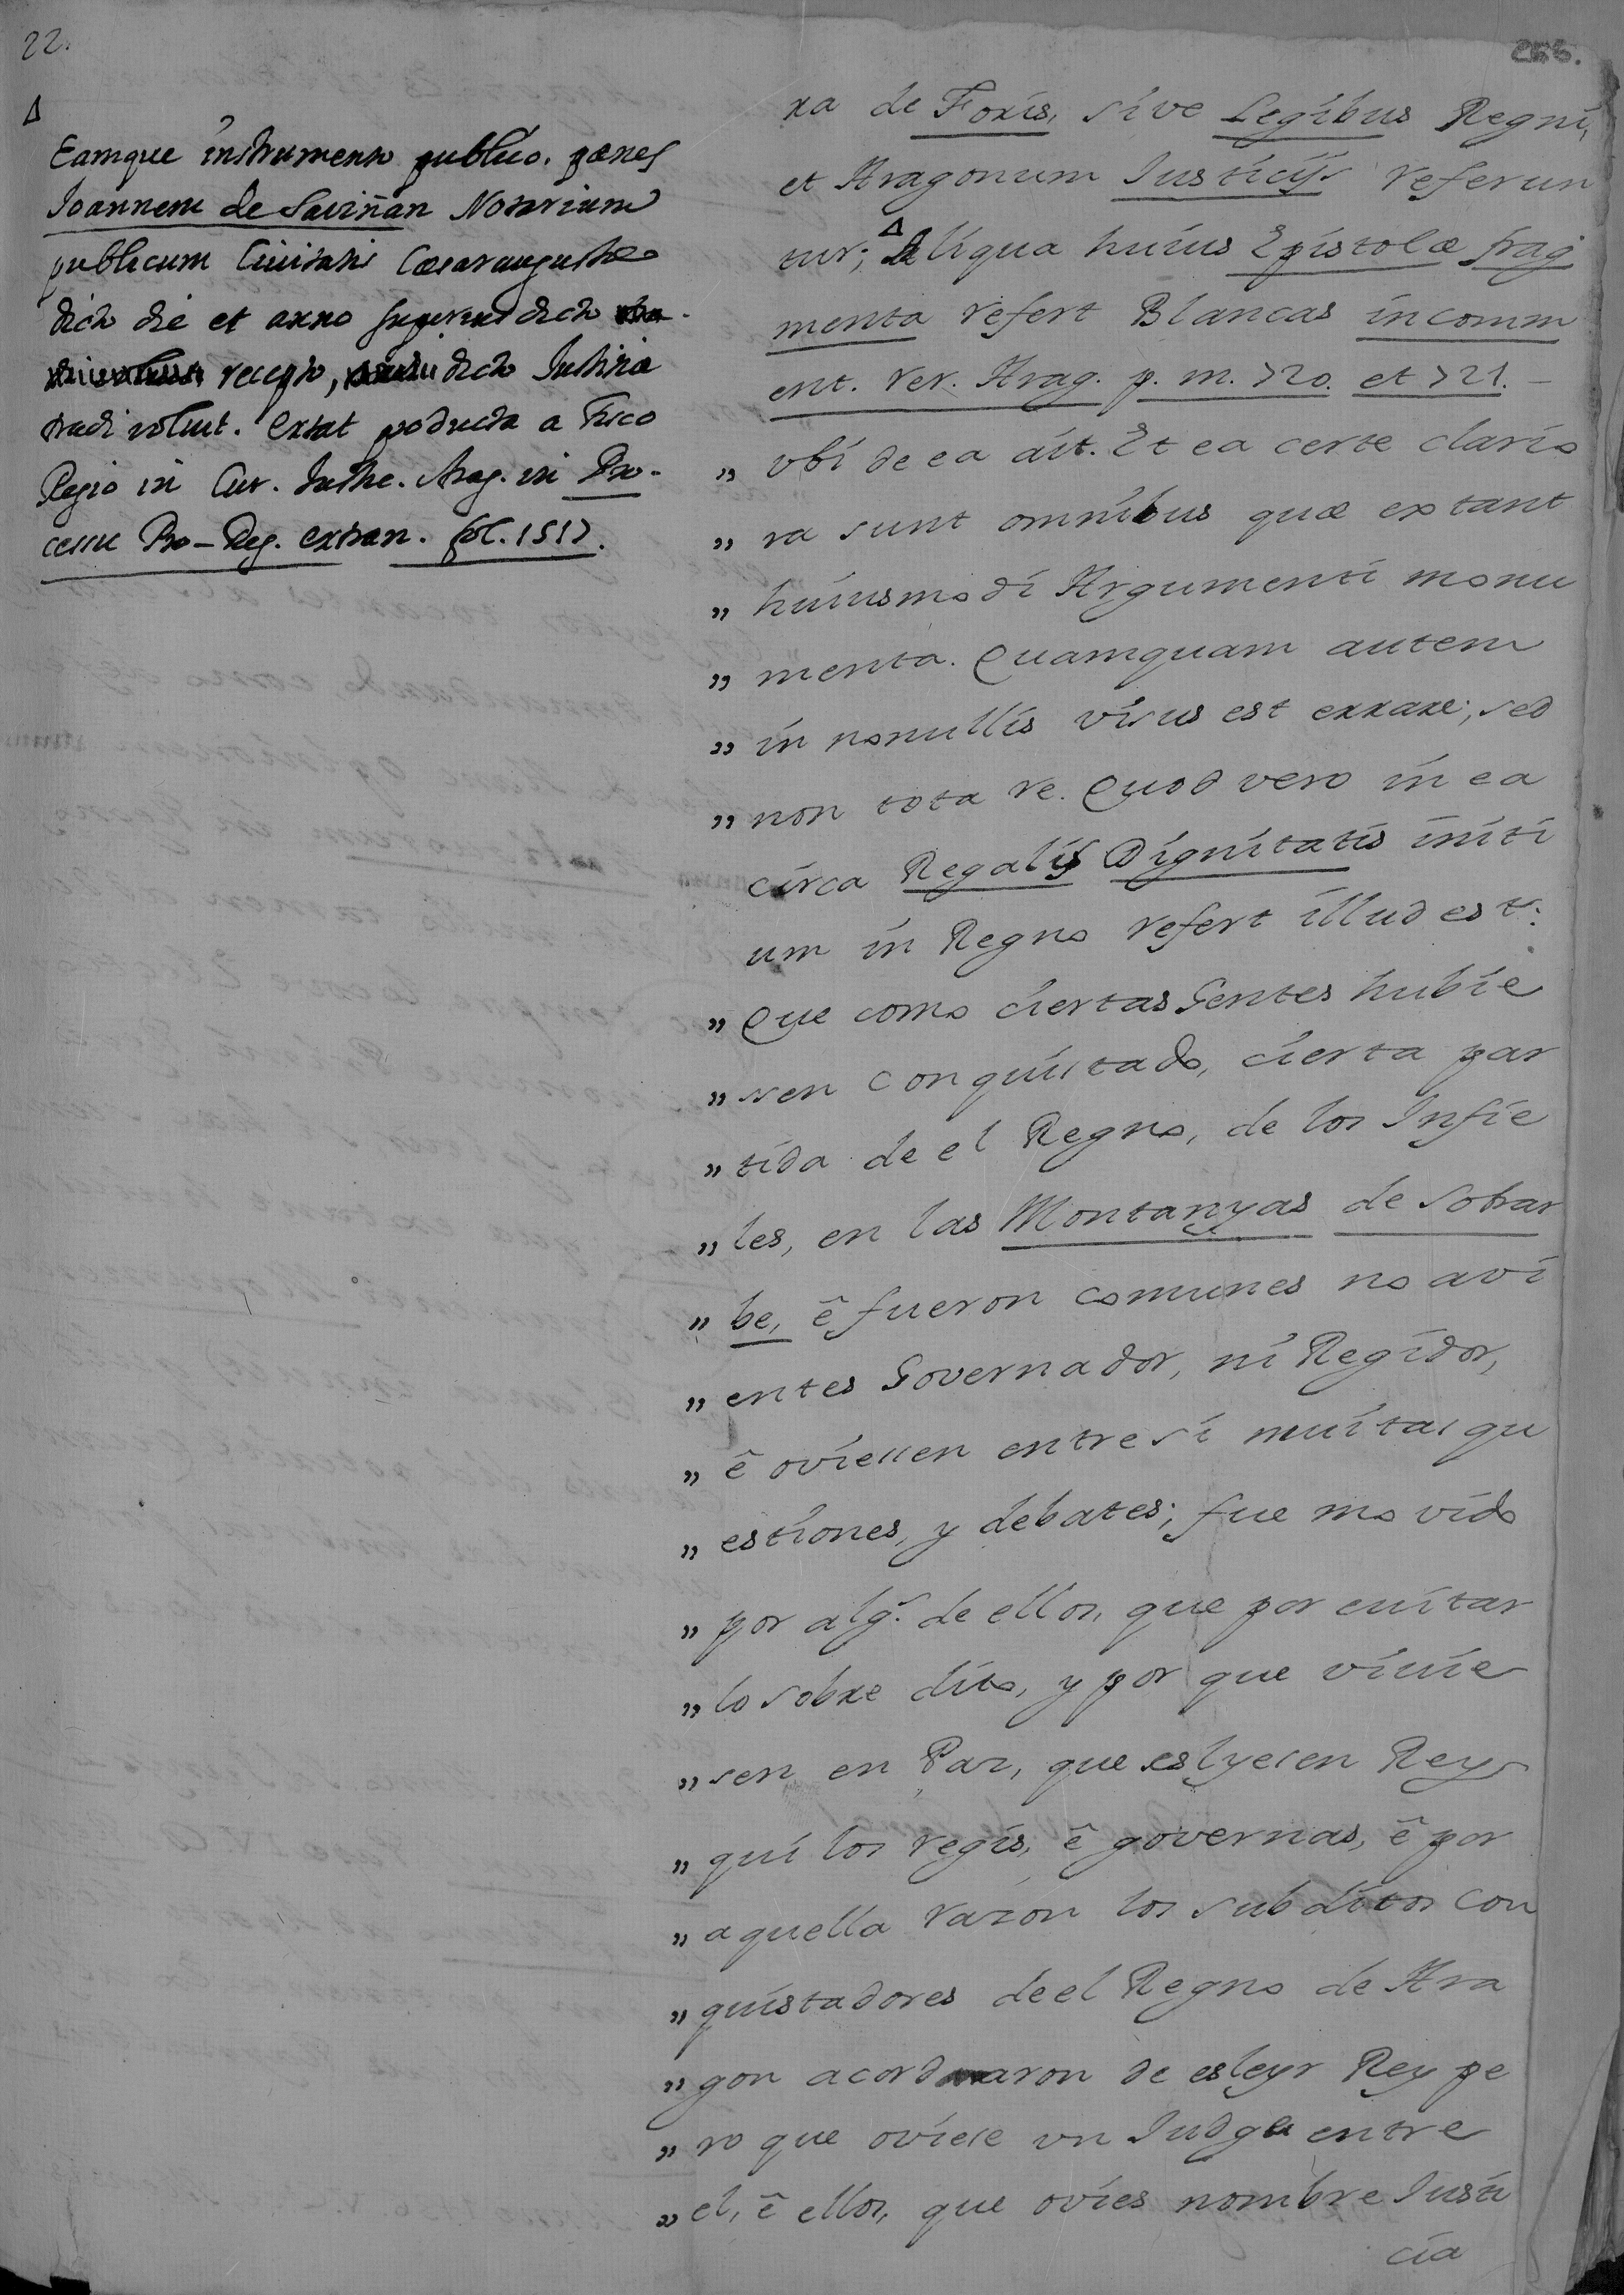 22.
Δ
Eamque instrumento publico. pœnes
Joannem de Saviñan Notarium
publicum Civitatis Cæsaraugustæ
dicto die et anno supra dicto
recepto, dicto Justitiæ
tradi voluit. Extat producta a Fisco
Regio in Cur. Justic. Arag. in Pro-
cessu Pro-Reg. extran. fol. 1517.
ra de Foris, sive Legibus Regni,
et Aragonum Justicijs referun
tur; Δ Aliqua huius Epistolæ frag
menta refert Blancas in comm
ent. rer. Arag. p. m. 720. et 721. -
„ vbi de ea ait. Et ea certe clario
„ ra sunt omnibus quæ extant
„ huiusmodi Argumenti monu
„ menta. Quamquam autem
„ in nonullis visus est errare; sed
„ non tota re. Quod vero in ea
circa Regalis Dignitatis initi
um in Regno refert illud est:
„ Que como ciertas Gentes hubie
„ ssen conquistado, cierta par
„ tida de el Regno, de los Infie
„ les, en las Montanyas de Sobrar
„ be, ê fueron comunes no avi
„ entes Governador, ni Regidor,
„ ê oviessen entre si muitas qu
„ estiones, y debates; fue movido
„ por alg.ˢ de ellos, que por euitar
„ lo sobre dito, y por que viuie
„ sen en Paz, que eslyesen Rey
„ qui los regis, ê governas, ê por
„ aquella razon los subditos con
„ quistadores de el Regno de Ara
„ gon acordaron de esleyr Rey pe
„ ro que oviese vn Judge entre
„ el, ê ellos, que ovies nombre Justi
cia